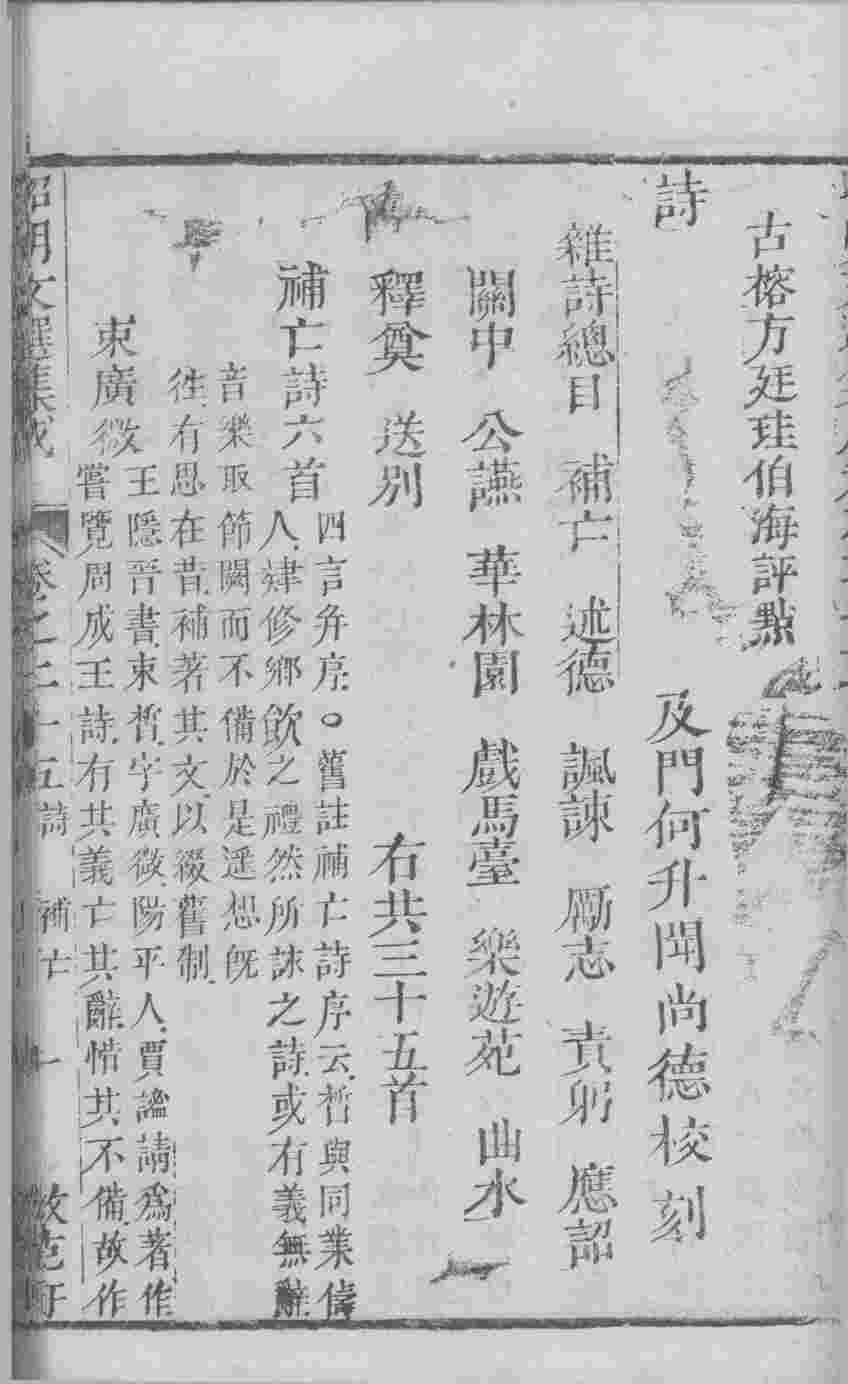 古榕方廷珪伯海評點
詩
及門何升聞尚德校刻
雜詩總目 補亡 述德 諷諫 勵志 責躬 應詔
關中 公讌 華林園 戲馬臺 樂遊苑 曲水
釋奠 送別
右共三十五首
補亡詩六首
四言并序○舊註補亡詩序云晳與同業儔
人肄修鄉飲之禮然所詠之詩或有義無辭
音樂取節闕而不備於是遥想旣
徃有思在昔補著其文以綴舊制
束廣微
王隱晉書束晳字廣微陽平人賈謐請爲著作
嘗覽周成王詩有其義亡其辭惜其不備故作
昭明文選集成 卷之二十五詩 補亡